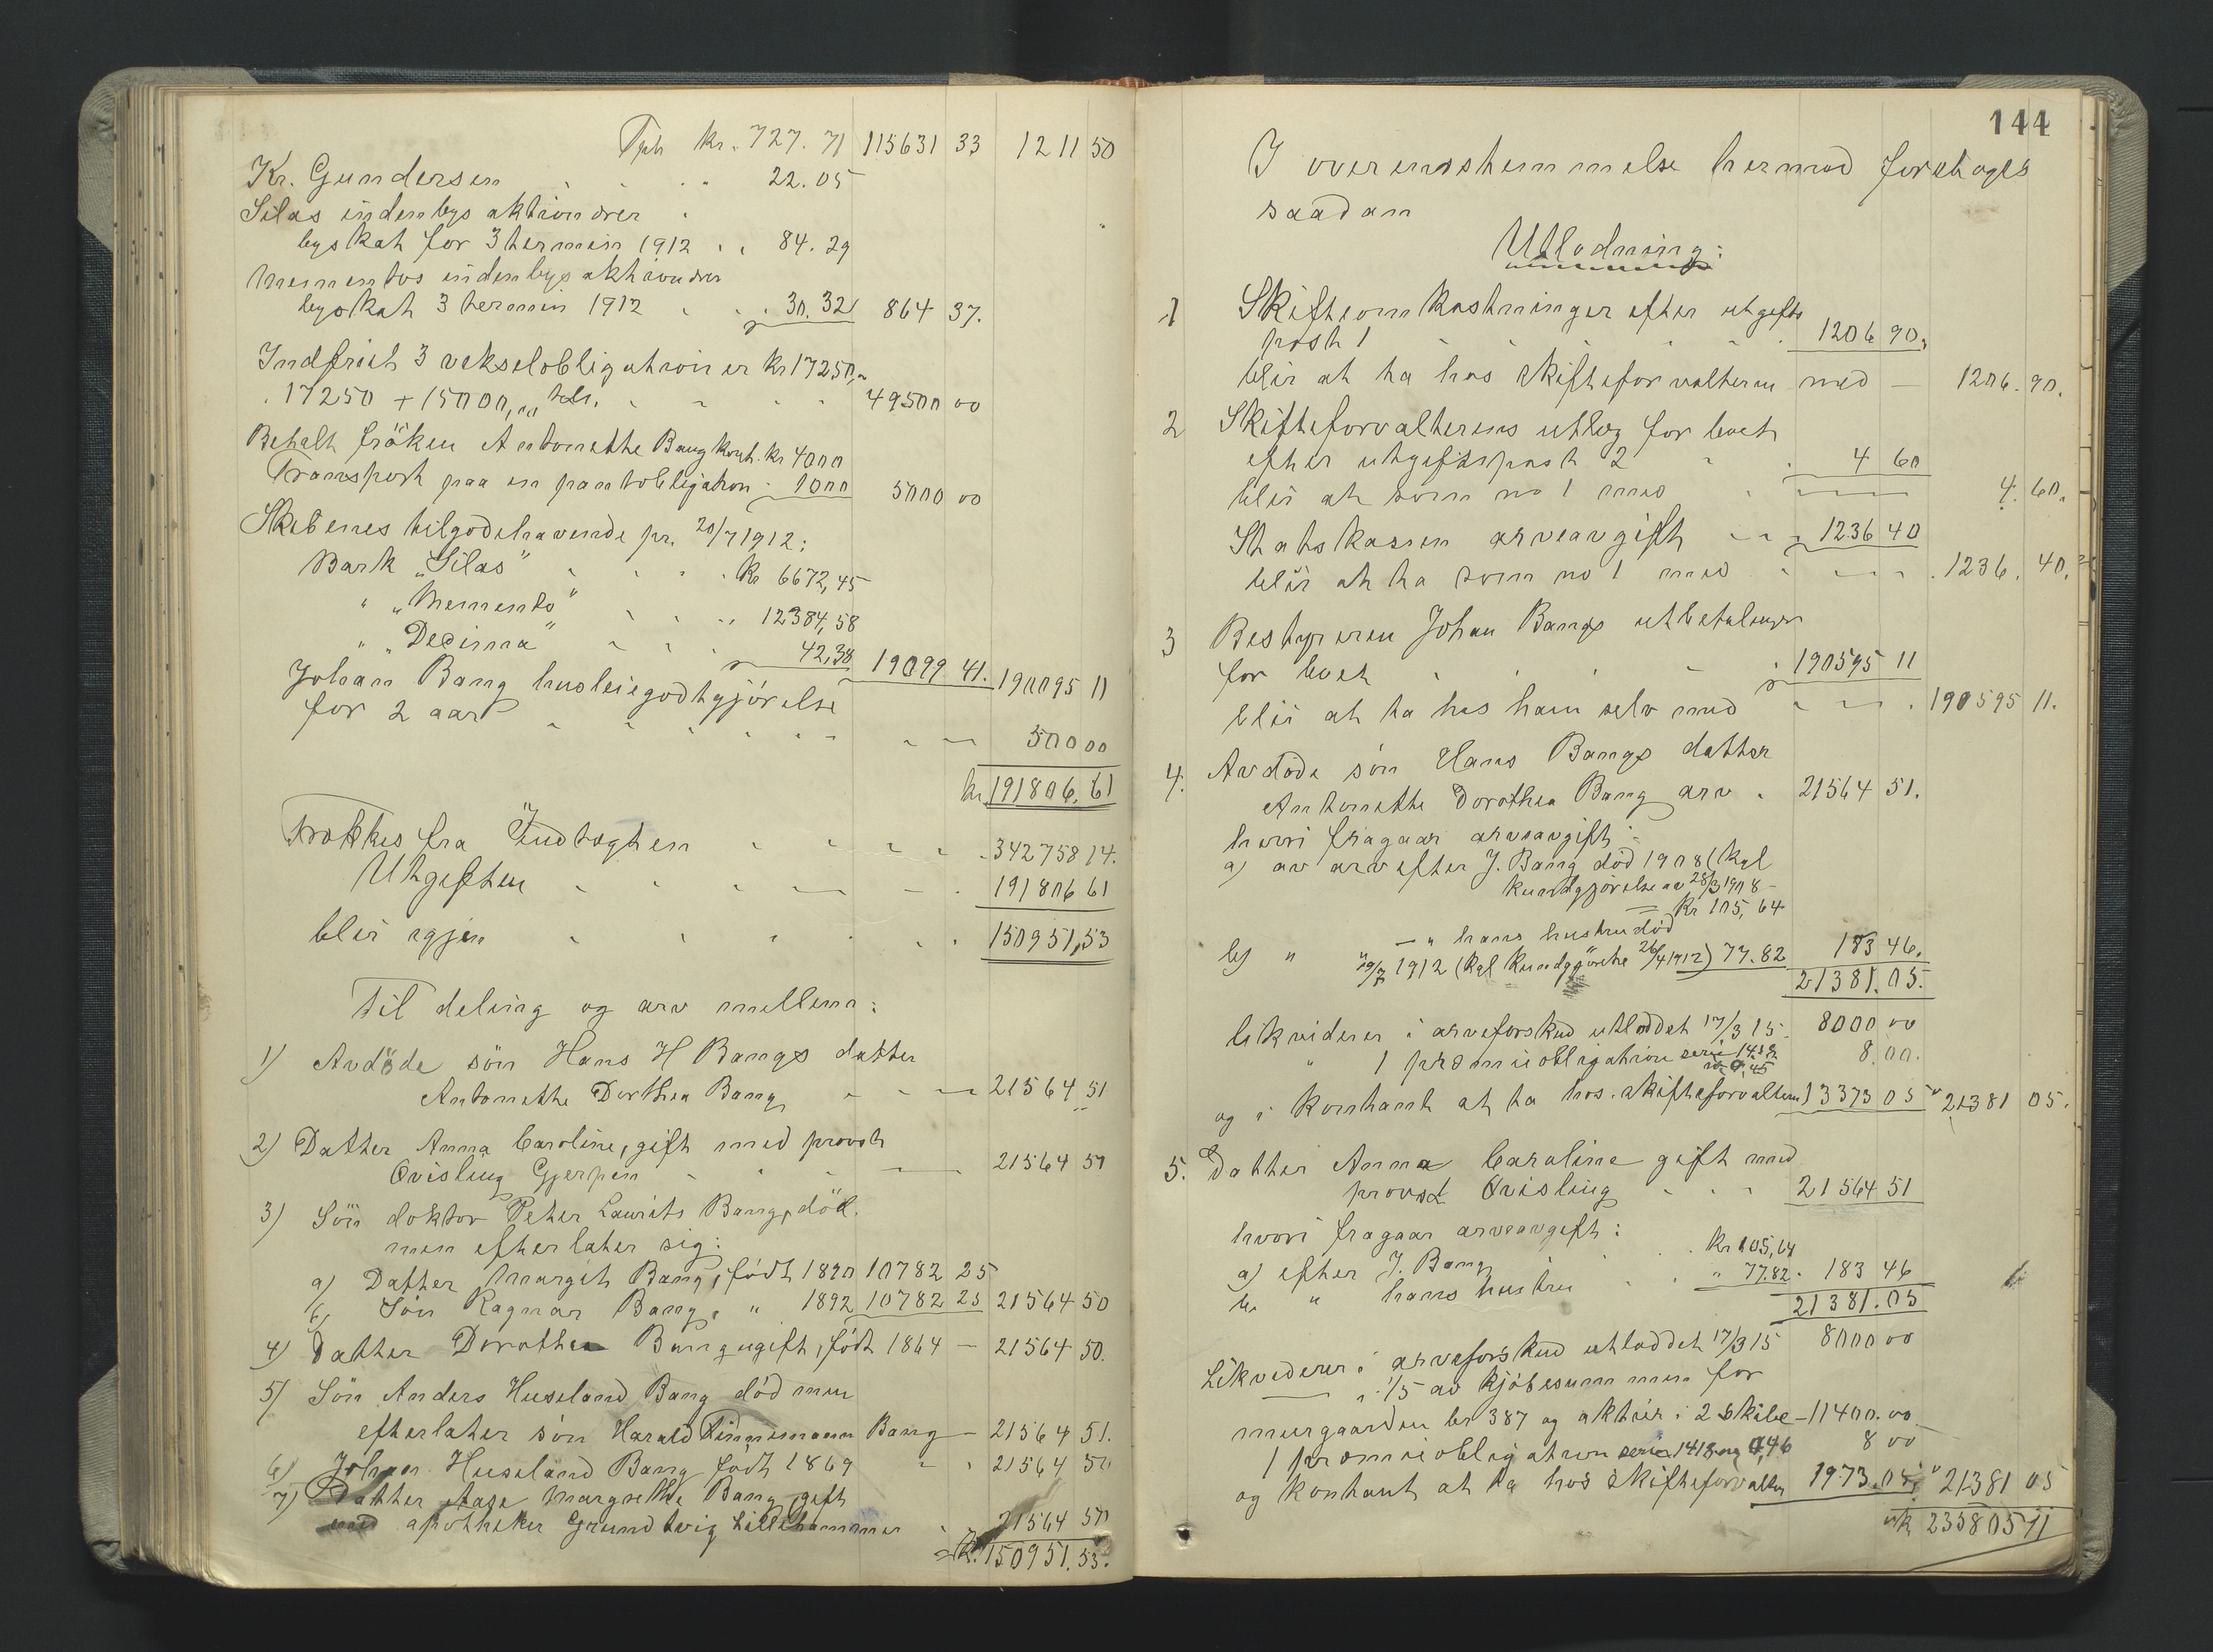 Tph kr. 727. 71 115631 33 1211 50
Kr. Gundersen 22.05
Silas indenbys aktionærer
byskat for 3 termin 1912 84.29
Mementos indenbys aktionærer
byskat 3 termin 1912 30.32 864 37.
Indfriet 3 vekselobligationer kr 17250,
17250 + 15000, 49500 00
Betalt fröken Antonette Bang kont. kr 4000
Transport paa en pantobligation 1000 5000 00
Skibenes tilgodehavende pr. 20/7 1912:
Bark "Silas" kr 6672,45
" "Memento" 12384,58
" "Decima" 42,38 19099 41. 190095 11
Johan Bang husleiegodtgjörelse
for 2 aar 500 00
kr. 191806.61
Trækkes fra Indtægten 342758 14.
Utgiften 191806 61
blir igjen 150951,53
Til deling og arv mellem:
1) Avdöde sön Hans H Bangs datter
Antonette Dorthea Bang 21564 51
2) Datter Anna Caroline, gift med provst
Qvisling Gjerpen 21564 50
3) Sön doktor Peter Laurits Bang, död.
men efterlater sig:
a) Datter Margit Bang, født 1890 10782 25
b) Sön Ragnar Bang, " 1892 10782 25 21564 50
4) Datter Dorothea Bang ugift, født 1864 — 21564 50.
5) Sön Anders Huseland Bang död men
efterlater sön Harald Tinnemann Bang — 21564 51.
6) Johan Huseland Bang født 1869 21564 50
7) Datter Aase Margrethe Bang gift
med apotheker Grundtvig Lillehammer 21564 50
Kr. 150951.53.
144
I overensstemmelse hermed foretages
saadan
Utlodning:
1 Skifteomkostninger efter utgifts
post 1 1206 90,
blir at ta hos skifteforvalteren med — 1206. 90.
2 Skifteforvalterens utlæg for boet
efter utgiftspost 2 4 60
blir at som no 1 med 4. 60.
Statskassen arveavgift 1236 40
blir at ta som no 1 med 1236. 40.
3 Bestyreren Johan Bangs utbetalinger
for boet 190595 11
blir at ta hos ham selv med 190595 11.
4. Avdöde sön Hans Bangs datter
Antonette Dorothea Bang arv 21564 51.
hvori fragaar arveavgift:
a) av arv efter J. Bang död 1908 (Kgl
kundgjörelse av 28/3 1908 —
Kr 105,64
— " hans hustru död
b) " " 19/7 1912 (Kgl kundgjörelse 26/4 1912) 77.82 183 46.
21381.05.
likviderer i arveforskud utloddet 17/3 15. 8000 00
" 1 præmieobligation serie 1418 8.00.
no 0,45
og i kontant at ta hos skifteforvalteren 13373 05 " 21381 05.
5. Datter Anna Caroline gift med
provst Qvisling 21564 51
hvori fragaar arveavgift:
a) efter J. Bang kr 105,64
b. " hans hustru " 77.82. 183 46
21381.05
Likviderer i arveforskud utloddet 17/3 15 8000 00
— " 1/5 av kjöbesummen for
murgaarden br 387 og aktier i 2 skibe — 11400.00
1 præmieobligation serie 1418 no 0,46 8 00
og kontant at ta hos skifteforvalter 1973.05 " 21381 05
235805 11